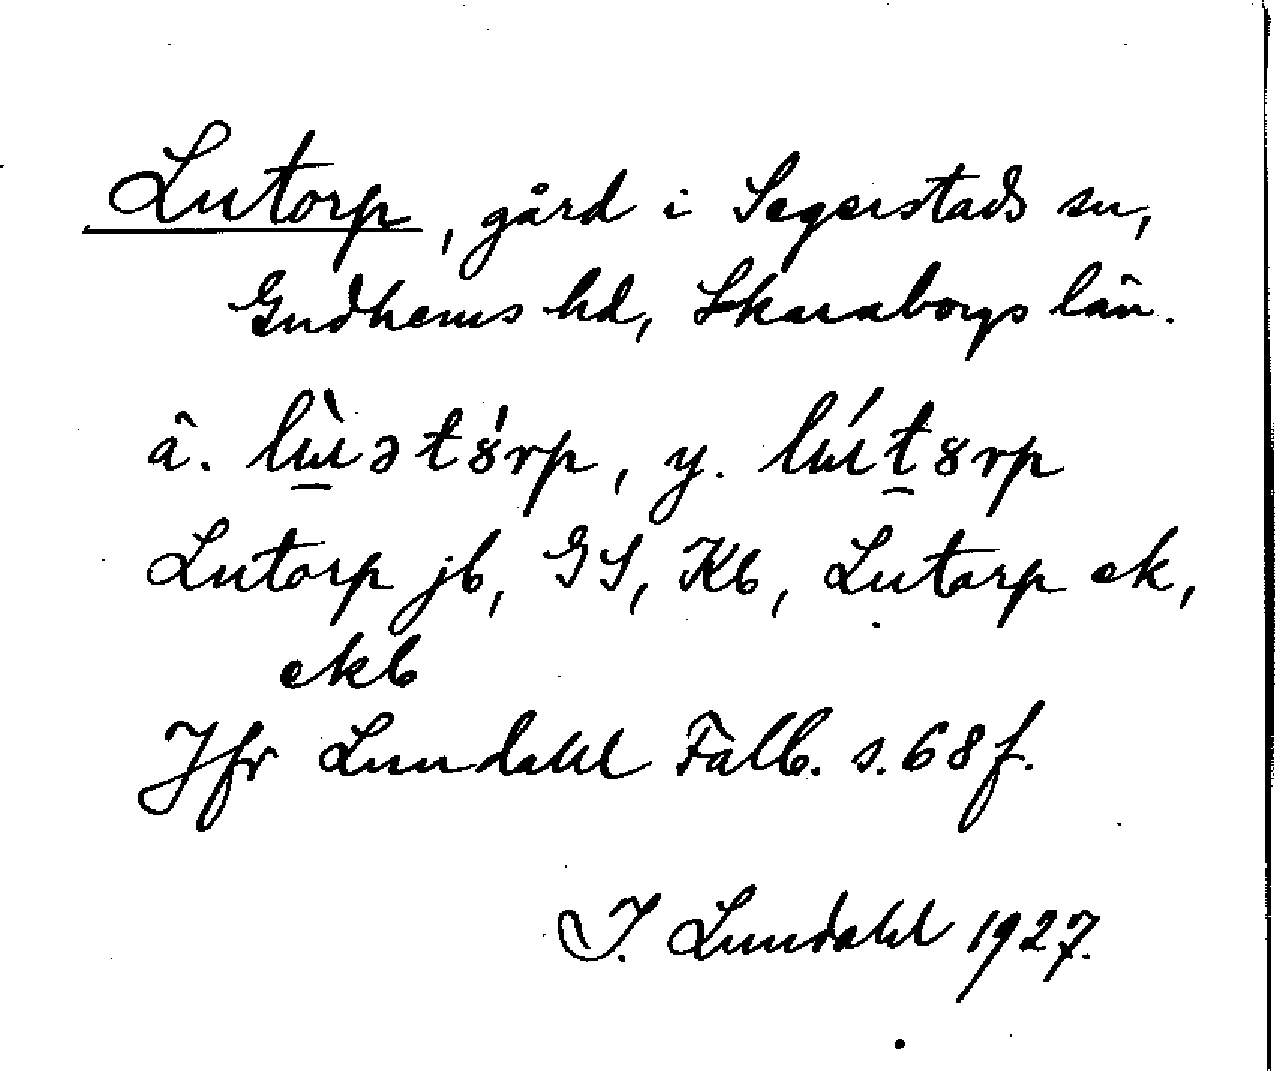 Lutorp, gård i Segerstads sn,
Gudhems hd, Skaraborgs län.
ä. lɯ̀ət8̍rp, y. lɯ́t8rp
Lutorp jb, GS, Kb, Lutorp ek,
ekb
Jfr Lundahl Falb. s. 68 f.
I. Lundahl 1927.